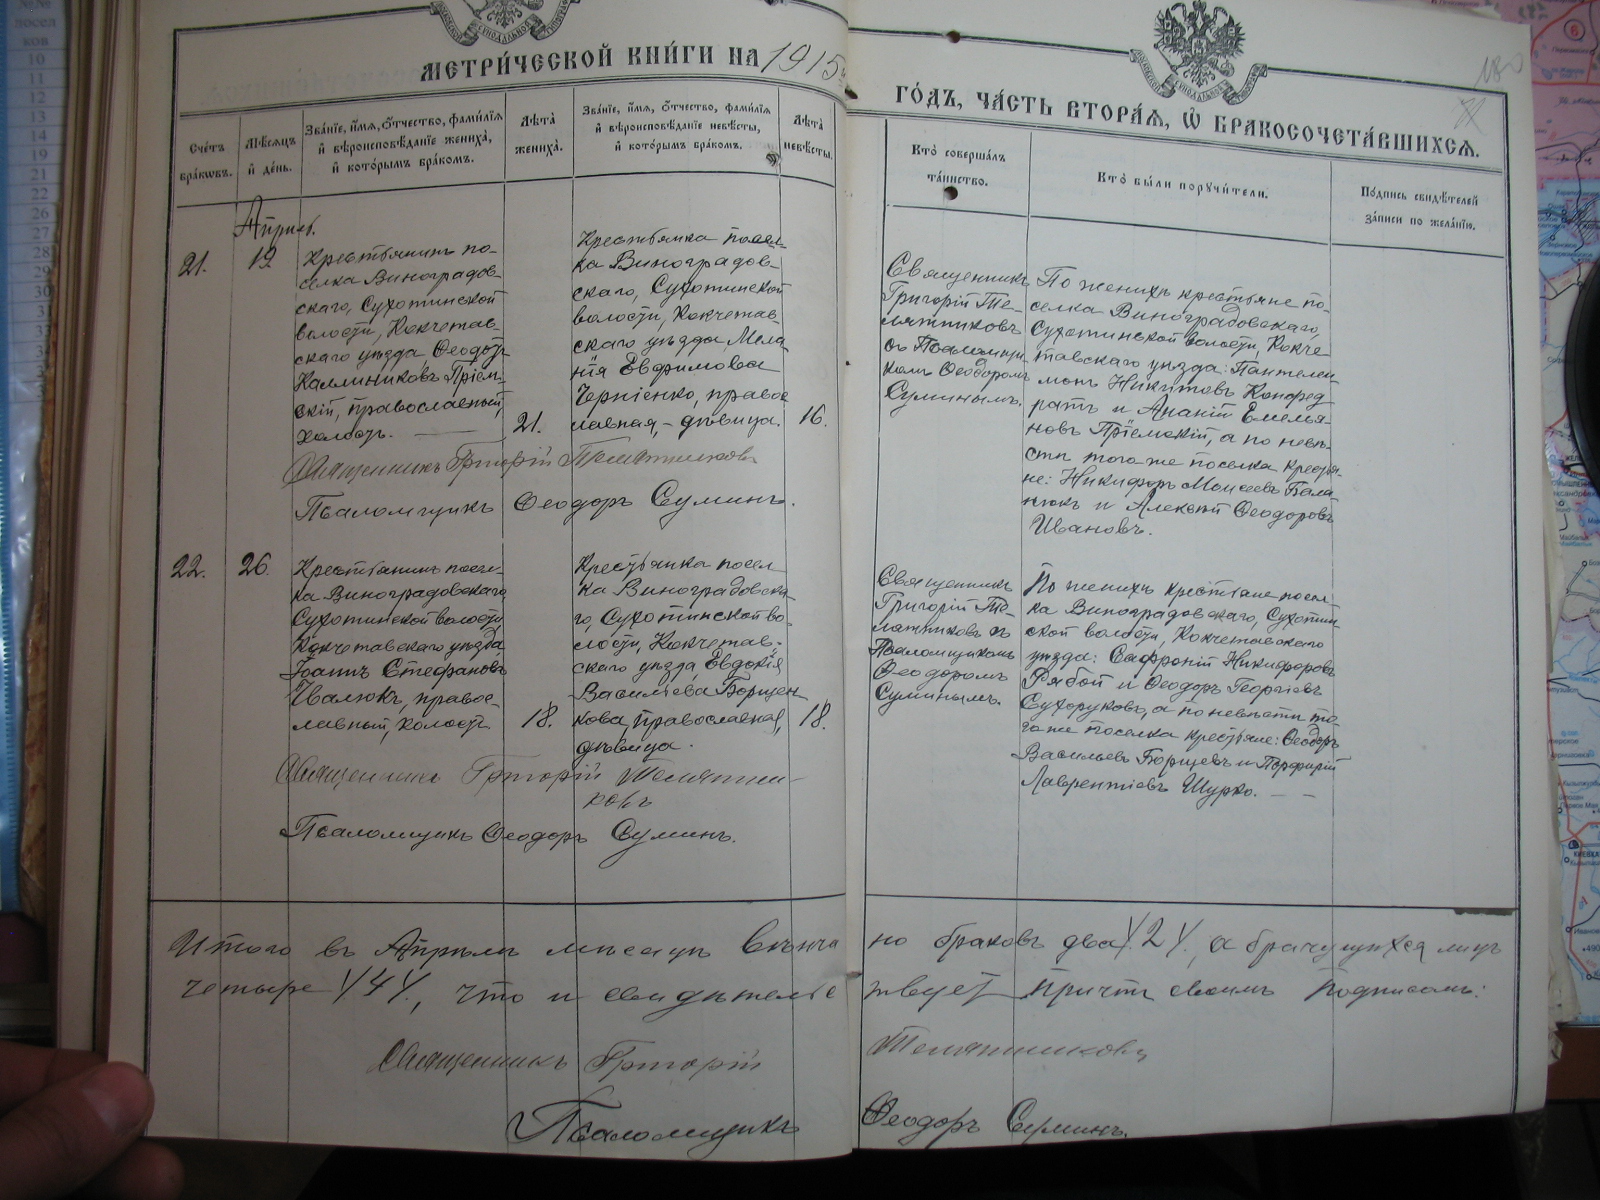 МЕТРИ́ЧЕСКОЙ КНИ́ГИ НА 1915
ГО́ДЪ, ЧА́СТЬ ВТОРА́Я, Ѡ БРАКОСОЧЕТА́ВШИХСЯ.
Сче́тъ бра́ковъ.
Мѣ́сяцъ и҆ де́нь.
Зва́нїе, и҆́мя, ѻ҆́тчество, фами́лїя
и҆ вѣроисповѣ́данїе жениха̀,
и҆ кото́рымъ бра́комъ.
Лѣ́та жениха̀.
Зва́нїе, и҆́мя, ѻ҆́тчество, фами́лїя
и҆ вѣроисповѣ́данїе невѣ́сты,
и҆ кото́рымъ бра́комъ.
Лѣ́та невѣ́сты.
Кто̀ соверша́лъ
та́инство.
Кто̀ бы́ли порꙋчи́тели.
По́дпись свидѣ́телей
за́писи по жела́нїю.
Апрѣль.
21.
19
Крестьянинъ по-
селка Виноградов-
скаго, Сухотинской
волости, Кокчетав-
скаго уѣзда Ѳеодотъ
Каллиниковъ Пріем-
скій, православный,
холостъ.
21.
Крестьянка посел-
ка Виноградов-
скаго, Сухотинской
волости, Кокчетав-
скаго уѣзда, Мела
нія Евфимовна
Черніенко, правос
лавная, - дѣвица.
16.
Священникъ
Григорій Те-
лятниковъ
съ Псаломщи
комъ Ѳеодоромъ
Суминымъ.
По женихѣ крестьяне по-
селка Виноградовскаго,
Сухотинской волости, Кокче
тавскаго уѣзда: Пантелеи
монъ Никитовъ Конфед
ратъ и Ананій Емелья-
новъ Пріемскій, а по невѣ-
стѣ того же поселка крестья-
не: Никифоръ Моисеевъ Бала-
нюкъ и Алексѣй Ѳеодоровъ
Ивановъ.
Священникъ Григорій Телятниковъ
Псаломщикъ Ѳеодоръ Суминъ.
22.
26.
Крестьянинъ посел-
ка Виноградовскаго
Сухотинской волости
Кокчетавскаго уѣзда
Іоаннъ Стефановъ
Ивалюкъ, правос-
лавный, холостъ
18.
Крестьянка посел
ка Виноградовска-
го, Сухотинской во-
лости, Кокчетав-
скаго уѣзда, Евдокія
Василіева Борщен
кова, православная,
дѣвица.
18.
Священникъ
Григорій Те-
лятниковъ съ
Псаломщикомъ
Ѳеодоромъ
Суминымъ.
По женихѣ крестьяне посел
ка Виноградовскаго, Сухотин-
ской волости, Кокчетавскаго
уѣзда: Сафроній Никифоровъ
Рябой и Ѳеодоръ Георгіевъ
Сухоруковъ, а по невѣсти то-
го же поселка крестьяне: Ѳеодоръ
Васильевъ Борщевъ и Порфирій
Лаврентіевъ Шурко.
Священникъ Григорій Телятни-
ковъ
Псаломщикъ Ѳеодоръ Суминъ.
Итого въ Апрѣлѣ мѣсяцѣ вѣнча но браковъ два /2/, а брачущихся лицъ
четыре /4/, что и свидѣтельс твуетъ причтъ своимъ подписомъ:
Священникъ Григорій Телятниковъ
Псаломщикъ Ѳеодоръ Суминъ.